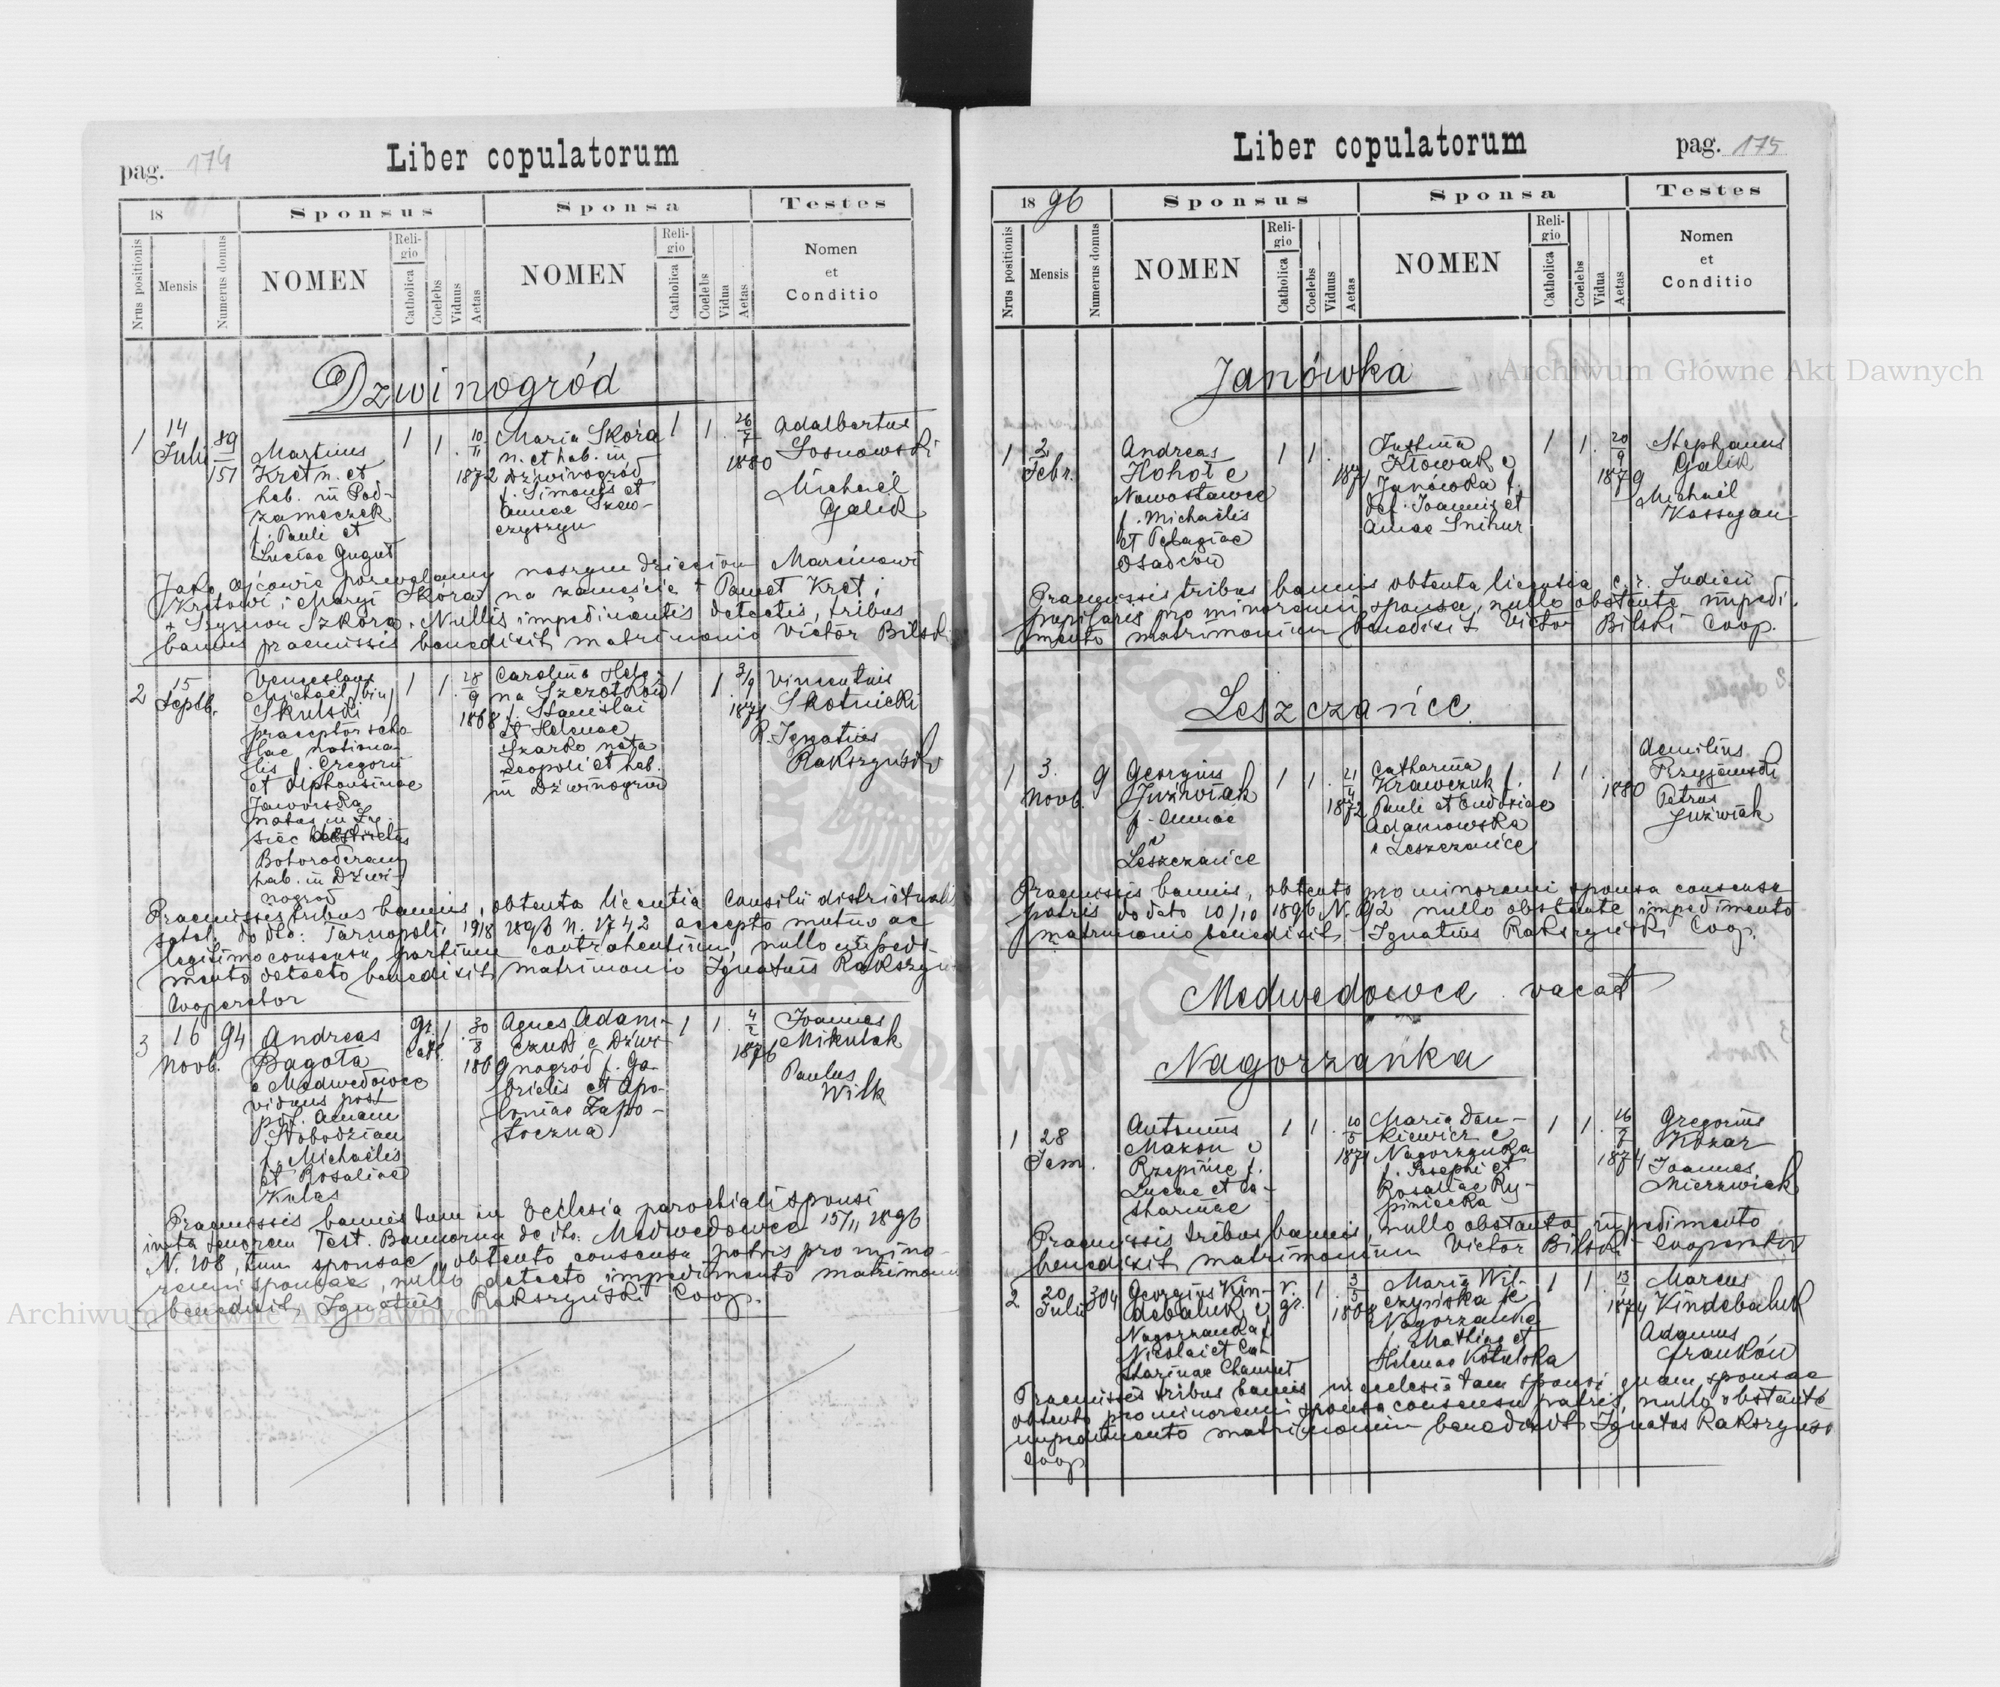 pag. 174
Liber copulatorum
18
Sponsus
Sponsa
Testes
Nrus positionis
Mensis
Numerus domus
NOMEN
Religio
Catholica
Coelebs
Viduus
Aetas
NOMEN
Religio
Catholica
Coelebs
Vidua
Aetas
Nomen
et
Conditio
Dzwinogród
1
14
Juli
89
151
Martinus
Kret n. et
hab. in Pod-
zameczek
f. Pauli et
Luciae
1
1
10
11
1872
Maria Skóra
n. et hab. in
Dzwinogród
f. Simonis et
Annae Szew-
czyszyn
1
1
26
7
1880
Adalbertus
Sosnowski
Michael
Galik
Jako ojcowie pozwalamy naszym dzieciom Marcinowi
Kretowi i Maryi Skóra na zamęście + Paweł Kret i
+ Szymon Szkóra. Nullis impedimentis detectis, tribus
bannis praemissis benedixit matrimonio Victor Bilski
2
15
Septb.
Venceslaus
Michaël (bin)
Skulski
praeceptor scho-
lae nationa-
lis f. Gregorii
et Alphonsinae
Jaworska
natus in
Bohorodczany
hab. in Dzwi-
nogród
1
1
28
9
1868
Carolina Hele-
na Szczotków
f. Stanislai
et Helenae
Szarko nata
Leopoli et hab.
in Dzwinogród
1
1
3/9
1874
Vincentius
Skotnicki
R. Ignatius
Rakszyński
Praemissis tribus bannis, obtenta licentia Consilii districtualis
schol. do dto: Tarnopoli 19/8 1896 N. 1742 accepto mutuo ac
legitimo consensu partium contrahentium, nullo impedi-
mento detecto benedixit matrimonio Ignatius Rakszyński
Cooperator
3
16
Novb.
94
Andreas
Bagota
e Medwedowce
viduus post
p. def. Annam
Słobodzian
f. Michaëlis
et Rosaliae
Kulas
gr.
cath.
1
30
8
1869
Agnes Adam-
czuk e Dzwi-
nogród f. Ga-
brielis et Apo-
loniae Zapo-
toczna
1
1
4
2
1876
Joannes
Mikulak
Paulus
Wilk
Praemissis bannis tum in Ecclesia parochiali sponsi
iuxta tenorem Test. Bannorum de dto: Medwedowce 15/11 1896
N. 108, tum sponsae, obtento consensu patris pro mino-
renni sponsae, nullo detecto impedimento matrimonio
benedixit Ignatius Rakszyński Coop.
Liber copulatorum
pag. 175
1896
Sponsus
Sponsa
Testes
Nrus positionis
Mensis
Numerus domus
NOMEN
Religio
Catholica
Coelebs
Viduus
Aetas
NOMEN
Religio
Catholica
Coelebs
Vidua
Aetas
Nomen
et
Conditio
Janówka
1
2
Febr.
Andreas
Hohol e
Nowostawce
f. Michaëlis
et Pelagiae
Osadców
1
1
1871
Justina
Kłowak e
Janówka f.
def. Joannis et
Annae Snihur
1
1
20
9
1879
Stephanus
Galik
Michaël
Kassyan
Praemissis tribus bannis obtenta licentia c. r. Judicii
pupilaris pro minorenni sponsa, nullo obstante impedi-
mento matrimonium benedixit Victor Bilski Coop.
Leszczańce
1
3.
Novb.
9
Georgius
Juzwiak
f. Annae
e
Leszczańce
1
1
21
4
1872
Catharina
Krawczuk f.
Pauli et Eudoxiae
Adamowska
e Leszczańce
1
1
1880
Aemilius
Przyjemski
Petrus
Juzwiak
Praemissis bannis, obtento pro minorenni sponsa consensu
patris do dato 10/10 1896 N. 92 nullo obstante impedimento
matrimonio benedixit Ignatius Rakszyński Coop.
Medwedowce vacat
Nagorzanka
1
28
Jan.
Antonius
Mazon e
Rzepińce f.
Lucae et Ca-
tharinae
1
1
10
5
1871
Maria Dan-
kiewicz e
Nagorzanka
f. Josephi et
Rosaliae Ry-
piniecka
1
1
16
7
1874
Gregorius
Kozar
Joannes
Mierzwiak
Praemissis tribus bannis, nullo obstante impedimento
benedixit matrimonium Victor Bilski Cooperator
2
20
Julii
304
Georgius Kin-
debaluk e
Nagorzanka f.
Nicolai et Ca-
tharinae
r.
gr.
1
3
5
1868
Maria Wil-
czyńska e
Nagorzanka
f. Mathiae et
Helenae Kotulska
1
1
13
1
1874
Marcus
Kindebaluk
Adamus
Franków
Praemissis tribus bannis in ecclesia tam sponsi quam sponsae
obtento pro minorenni sponsa consensu patris, nullo obstante
impedimento matrimonium benedixit Ignatus Rakszyński
Coop
Archiwum Główne Akt Dawnych
Archiwum Główne Akt Dawnych